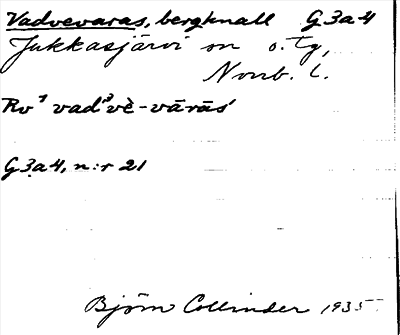 Vadvevaras, bergknall G3a4
Jukkasjärvi sn o. tg,
Norrb. l.
Rv ¹vad³vè-vārās'
G3a4, n:r 21
Björn Collinder 1935